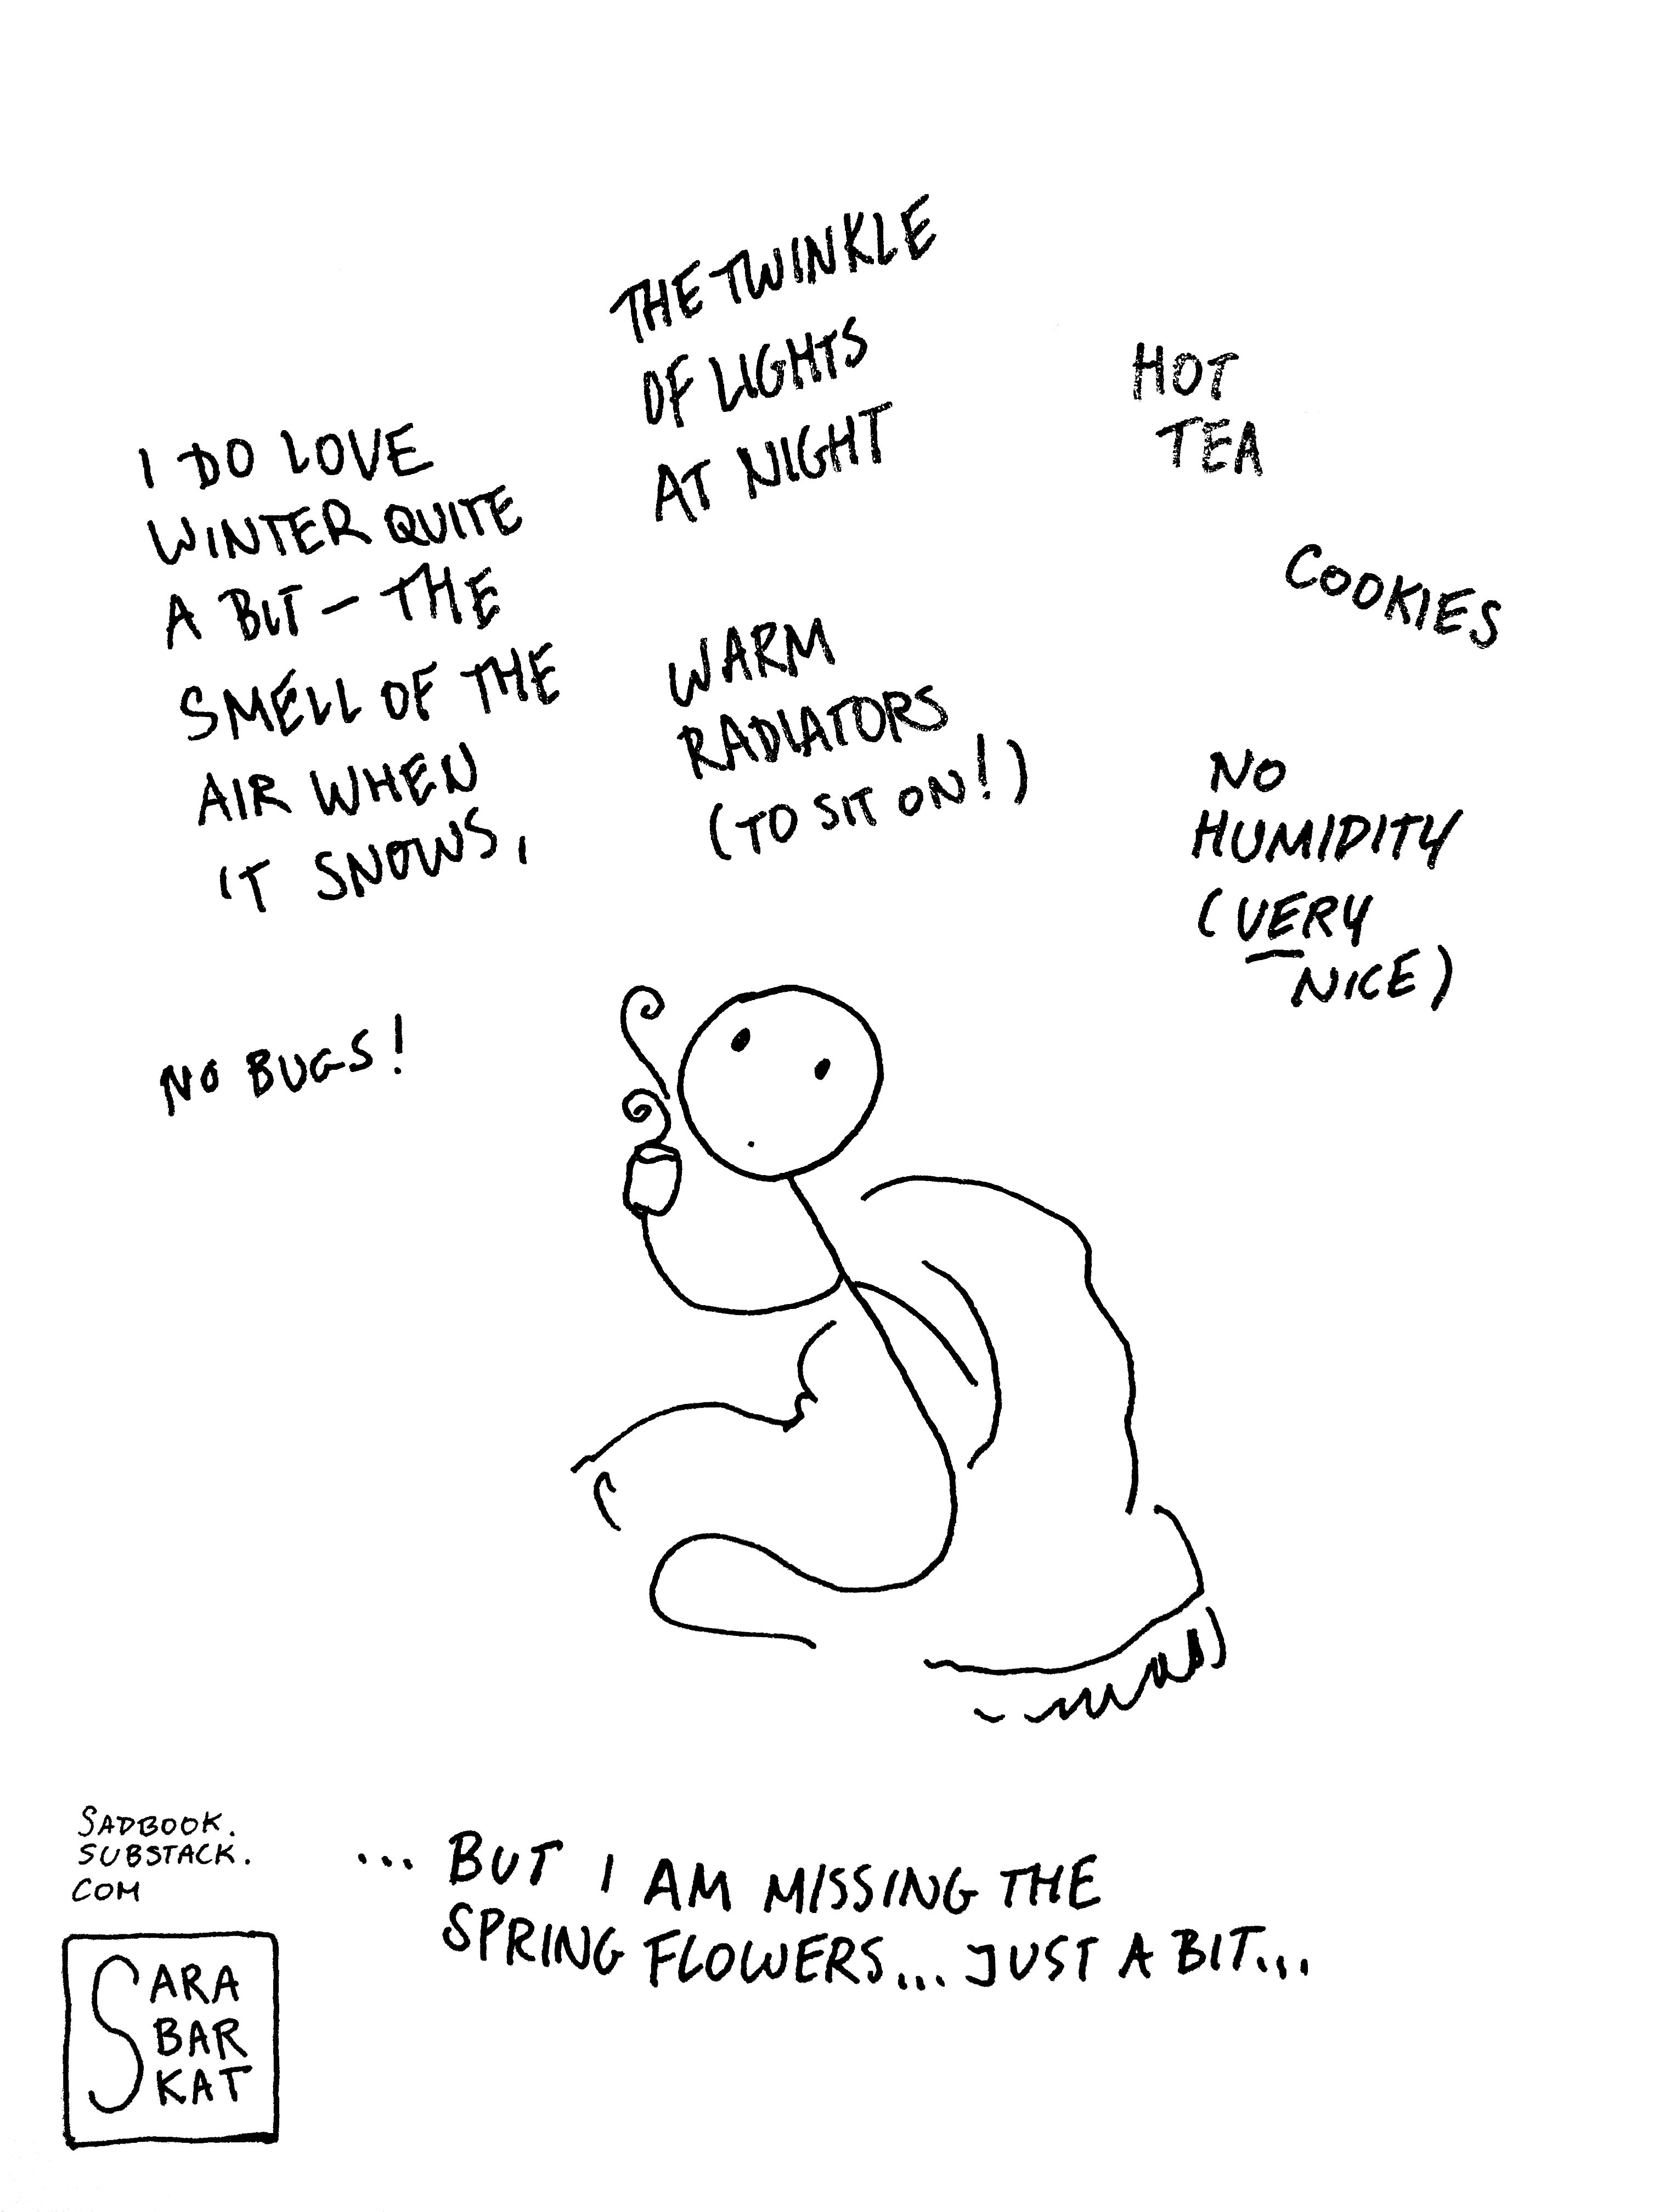 I DO LOVE
WINTER QUITE
A BIT – THE
SMELL OF THE
AIR WHEN
IT SNOWS,
THE TWINKLE
OF LIGHTS
AT NIGHT
HOT
TEA
COOKIES
WARM
RADIATORS
(TO SIT ON!)
NO
HUMIDITY
(VERY
NICE)
NO BUGS!
... BUT I AM MISSING THE
SPRING FLOWERS... JUST A BIT...
SADBOOK.
SUBSTACK.
COM
SARA
BAR
KAT